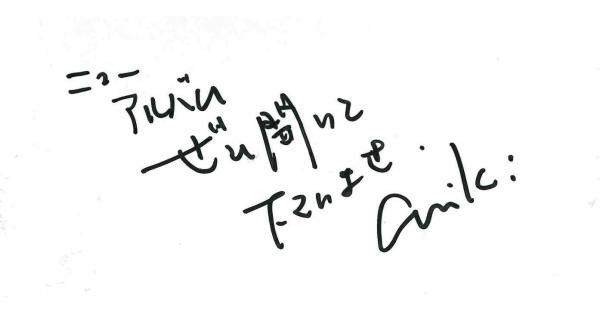 ニュー
アルバム
ぜひ聞いて
下さいませ.